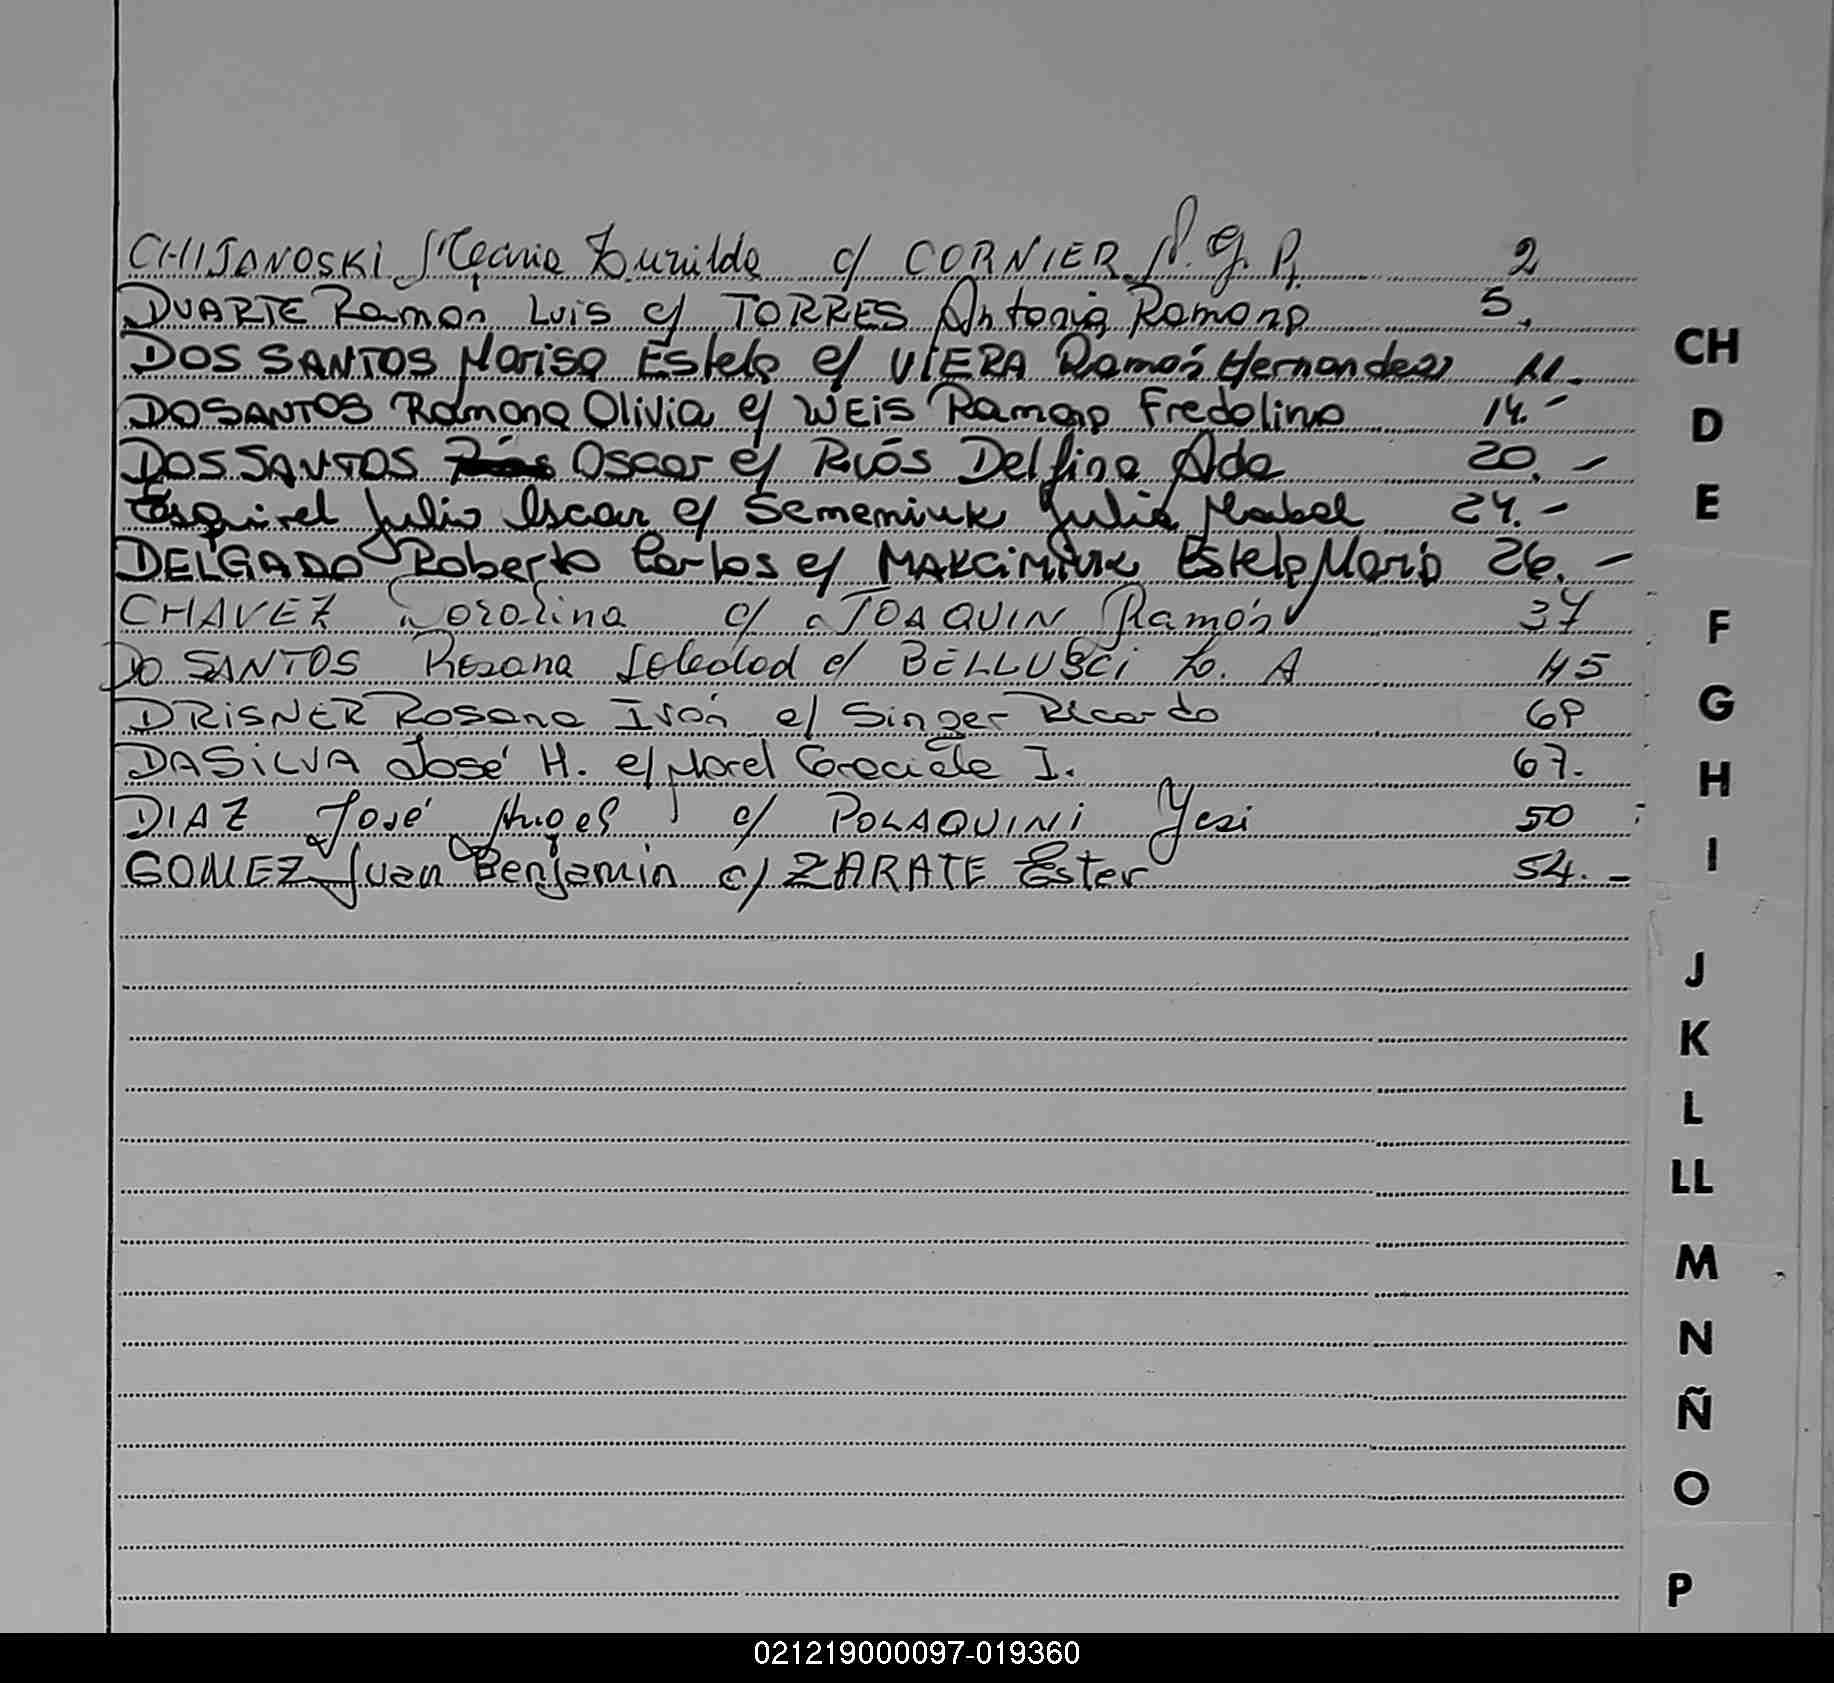 CHIJANOSKI María Zunilda c/ CORNIER 2
DUARTE Ramón Luis c/ TORRES Antonia Ramona 5.
CH
DOS SANTOS Marisa Estela c/ VIERA Ramón Hernandez 11.-
DOSANTOS Ramona Olivia c/ WEIS Ramon Fredolino 14.-
D
DOS SANTOS Oscar c/ Riós Delfina Ada 20.-
Esquivel Julio Oscar c/ Semeniuk Julia Mabel 24.-
E
DELGADO Roberto Carlos c/ MAKCIMIUK Estela Maris 26.-
CHAVEZ Carolina c/ JOAQUIN Ramón 37
F
DO SANTOS Rosana Soledad c/ BELLUSCI L. A 45
DRISNER Rosana Ivón c/ Singer Ricardo 68
G
DASILVA José H. c/ Morel Graciela I. 67.
H
DIAZ José Angel c/ POLAQUINI Yesi 50
GOMEZ Juan Benjamin c/ ZARATE Ester 54.-
I
J
K
L
LL
M
N
Ñ
O
P
021219000097-019360